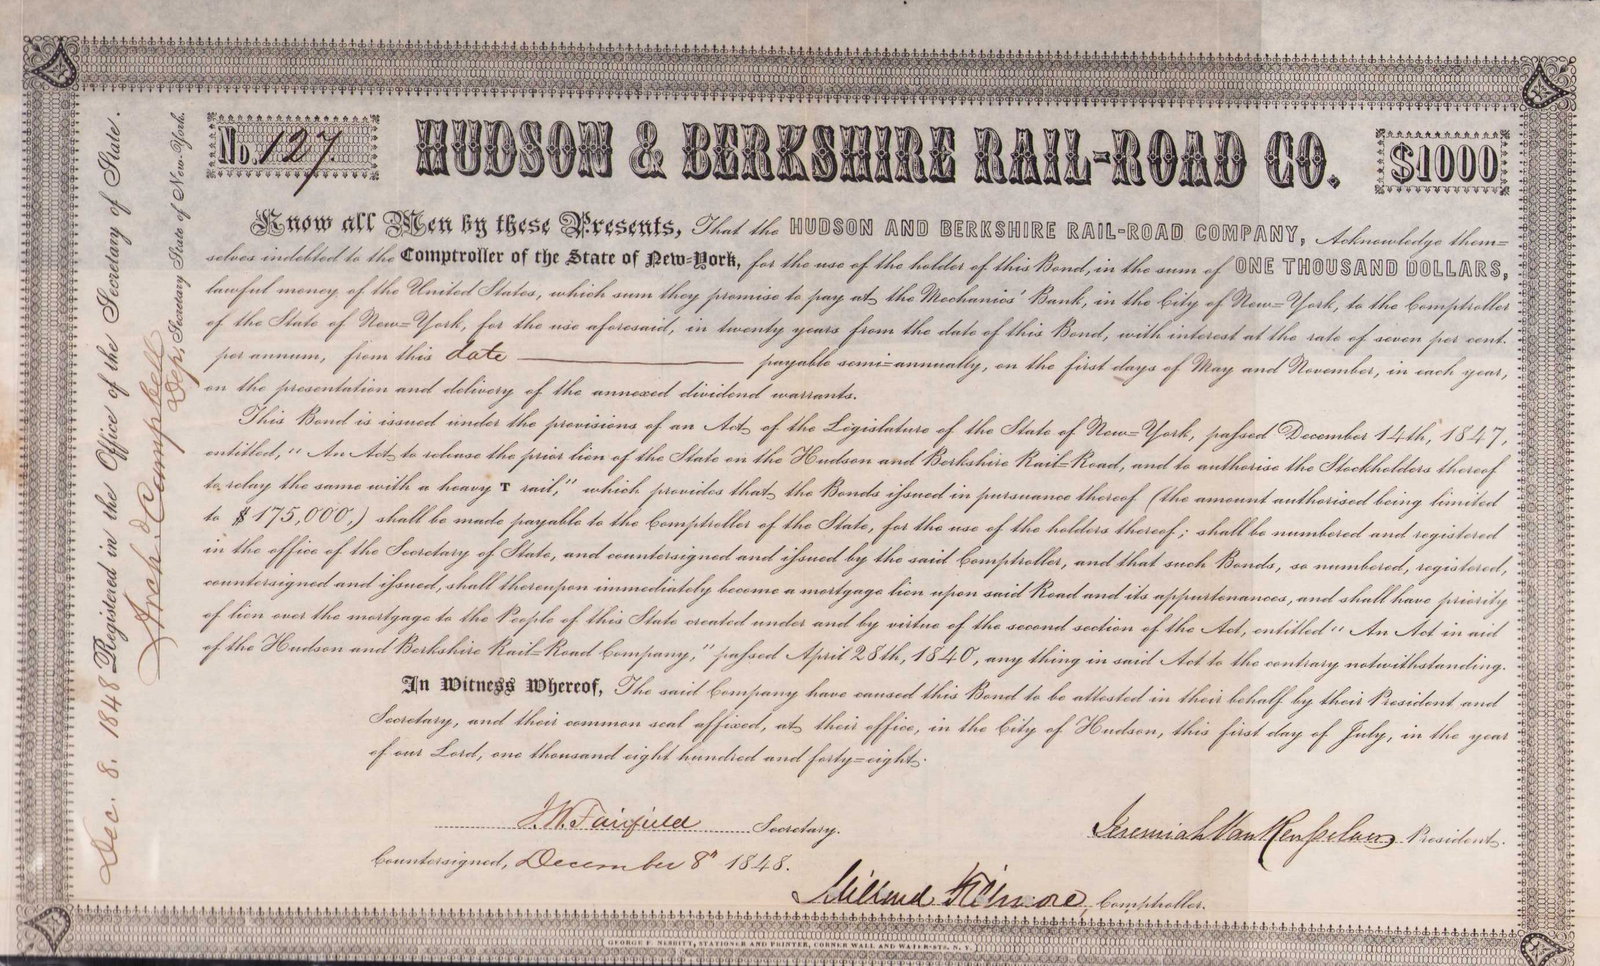 No. 127.
HUDSON & BERKSHIRE RAIL-ROAD CO.
$1000
Know all Men by these Presents, That the HUDSON AND BERKSHIRE RAIL-ROAD COMPANY, Acknowledge them=
selves indebted to the Comptroller of the State of New-York, for the use of the holder of this Bond, in the sum of ONE THOUSAND DOLLARS,
lawful money of the United States, which sum they promise to pay at the Mechanics' Bank, in the City of New=York, to the Comptroller
of the State of New=York, for the use aforesaid, in twenty years from the date of this Bond, with interest at the rate of seven per cent.
per annum, from this date payable semi=annually, on the first days of May and November, in each year,
on the presentation and delivery of the annexed dividend warrants.
This Bond is issued under the provisions of an Act of the Legislature of the State of New=York, passed December 14th, 1847,
entitled, "An Act to release the prior lien of the State on the Hudson and Berkshire Rail=Road, and to authorise the Stockholders thereof
to relay the same with a heavy T rail," which provides that the Bonds issued in pursuance thereof (the amount authorised being limited
to $175,000,) shall be made payable to the Comptroller of the State, for the use of the holders thereof; shall be numbered and registered
in the office of the Secretary of State, and countersigned and issued by the said Comptroller, and that such Bonds, so numbered, registered,
countersigned and issued, shall thereupon immediately become a mortgage lien upon said Road and its appurtenances, and shall have priority
of lien over the mortgage to the People of this State created under and by virtue of the second section of the Act, entitled "An Act in aid
of the Hudson and Berkshire Rail=Road Company," passed April 28th, 1840, any thing in said Act to the contrary notwithstanding.
In Witness Whereof, The said Company have caused this Bond to be attested in their behalf by their President and
Secretary, and their common seal affixed, at their office, in the City of Hudson, this first day of July, in the year
of our Lord, one thousand eight hundred and forty=eight.
J.W. Fairfield Secretary.
Jeremiah Van Rensselaer President.
Countersigned, December 8" 1848.
Millard Fillmore, Comptroller.
Dec. 8. 1848 Registered in the Office of the Secretary of State.
Arch. Campbell
Dep. Secretary State of New-York.
GEORGE F. NESBITT, STATIONER AND PRINTER, CORNER WALL AND WATER-STS. N. Y.